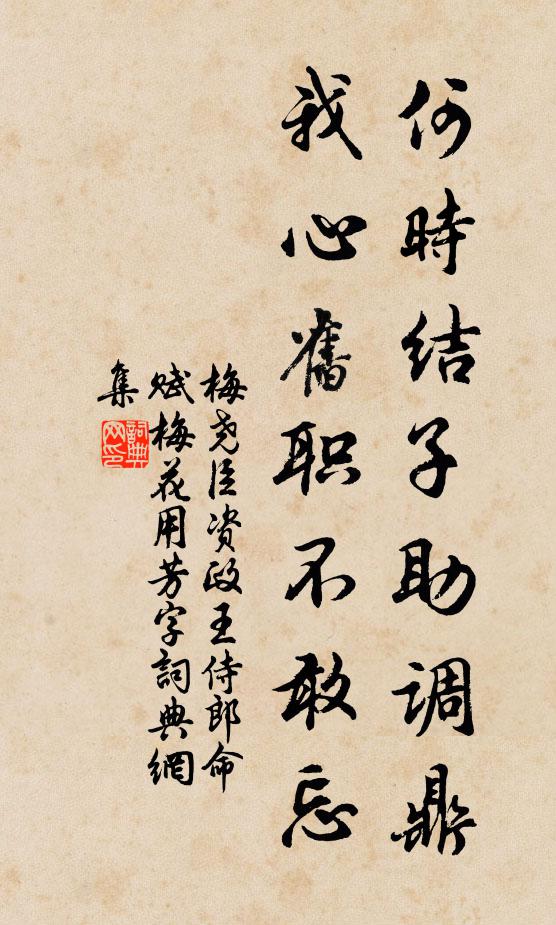 何時结子助调鼎
我心舊职不敢忘
梅尧臣资政王侍郎命
赋梅花用芳字詞典網
集
詞典
网印